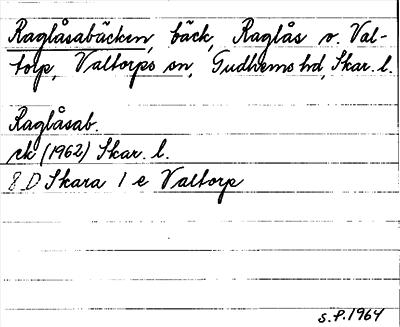 Raglåsabäcken, bäck, Raglås o. Val-
torp, Valtorps sn, Gudhems hd, Skar. l.
Raglåsab.
rk (1962) Skar. l.
8 D Skara 1 e Valtorp
S.P. 1964